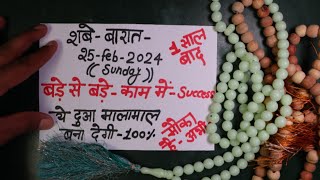 शबे- बारात-
25-Feb-2024
((Sunday))
1 साल बाद
बड़े से बड़े- काम में- Success
ये- दुआ मालामाल
बना देगी-100%
मौका
है- अभी